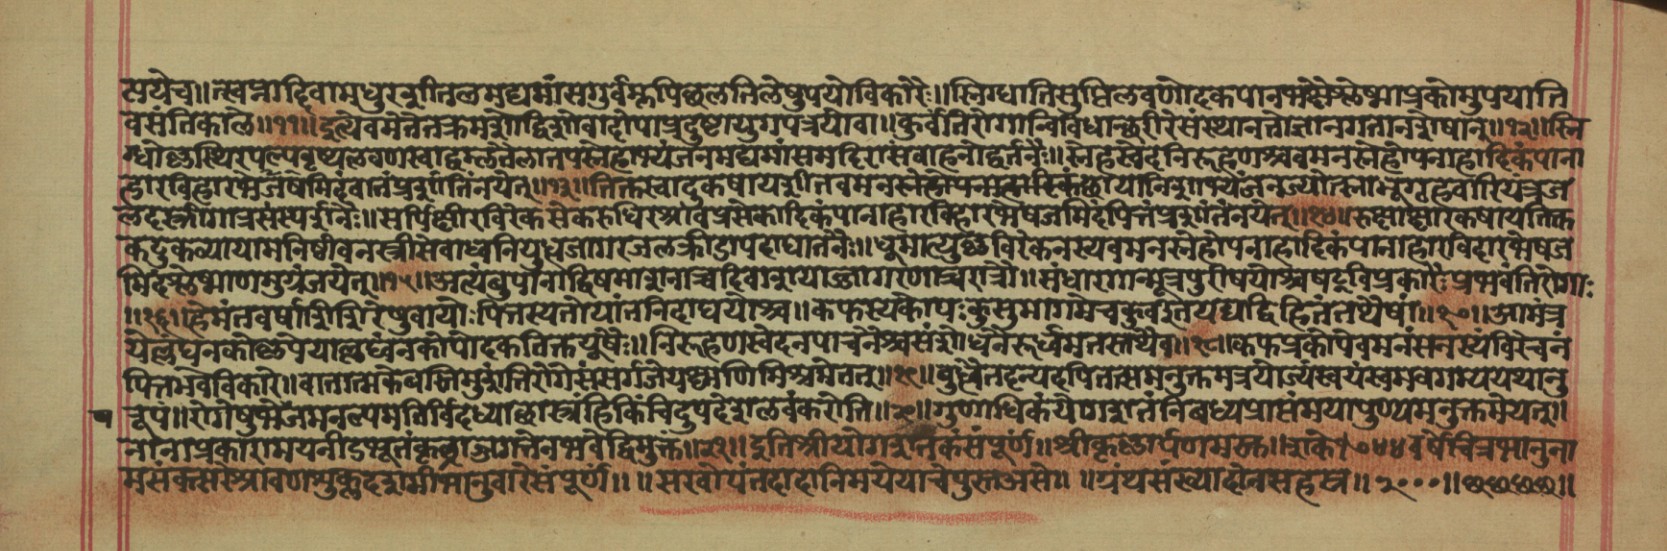 त्सयेच॥स्वप्नादिवामधुरशीतलमद्यमांसगुर्वम्लपिछलतिलेषुपयोविकारैः॥स्निग्धातितृप्तिलवणोदकपानभक्षैःश्लेष्माप्रकोमुपयाति
वसंतिकाले॥११॥इत्येवमेतेतेक्रमशोद्विशोवादोषाप्रदुष्टायुगपत्रयोवा॥कुर्वंतिरोगान्विविधान्शरीरेसंस्थानतोज्ञानगतानशेषान्॥१२॥स्नि
ग्धोष्णस्थिरवृष्यबल्यलवणस्वाद्वम्लतैलातपस्नेहाभ्यंजनमद्यमांसमदिरासंवाहनोद्वर्तनैः॥स्नेहस्वेदनिरूहणश्चवमनस्नेहोपनाहादिकंपाना
हारविहारभेषजमिदंवातंप्रशांतिंनयेत्॥१३॥तिक्तस्वादुकषायशीतपवनछायानिशाभ्यंजनज्योत्स्नाभूगृहवारियंत्रज
लदस्त्रीगात्रसंस्पर्शनैः॥सर्पिक्षीरविरेकसेकरुधिरश्रावप्रसेकादिकंपानाहारविहारभेषजमिदंपित्तंप्रशांतंनयेत्॥१४॥रुक्षोष्णक्षारकषायतिक्त
कटुकव्यायामनिष्ठीवनस्त्रीसेवाध्वनियुद्धजागरजलक्रीडापदाघातनैः॥धूमात्युष्णविरेकनस्यवमनस्नेहोपनाहादिकंपानाहारविहारभेषज
मिदंश्लेष्माणमुग्रंजयेत्॥१५॥अत्यंबुपानाद्विषमाशनाच्चदिवाशयाज्जागरणाच्चरात्रौ॥संधारणान्मूत्रपुरीषयोश्चषड्विप्रकारैःप्रभवंतिरोगाः
॥१६॥हेमंतवर्षाशिशिरेषुवायोःपित्तस्यतोयांतनिदाघयोश्च॥कफस्यकोपःकुसुमागमेचकुर्वीतयद्यद्विहितंतथैषां॥१७॥आमंत्र
येल्लंघनकोष्णपेयालघ्वन्नकोपोदकतिक्तयूषैः॥निरूहणस्वेदनपाचनैश्चसंशोधनैरूर्ध्वमतस्तथैव॥१८॥कफप्रकोपेवमनंसनस्यंविरेचनं
पित्तभवेविकारे॥वातात्मकेबस्तिमुशंतिरोगेसंसर्गजेयक्ष्मणिमिश्रमेतत्॥१९॥बुध्वैतदन्यदपितत्समनुक्तमत्रयोज्यंस्वयंस्वमवगम्ययथानु
रूपं॥रोगेषुभेषजमनल्पमतिर्विदध्याछास्त्रंहिकिंचिदुपदेशलवंकरोति॥२०॥गुणाधिकंयोगशतंनिबध्यप्राप्तंमयापुण्यमनुक्तमेयत्॥
नानाप्रकारामयनीडभूतंकृत्स्नंजगत्तेनभवेद्विमुक्तं॥२१॥इतिश्रीयोगशतकंसंपूर्णं॥श्रीकृष्णार्पणमस्तु॥शके१७४४वर्षेचित्रभानुना
मसंवत्सरेश्रावणशुक्लदशमीभानुवारेसंपूर्णं॥ ॥सखोपंतदादानिमययाचेपुस्तअसे॥ ॥ग्रंथसंख्यादोनसहस्त्र॥२०००॥